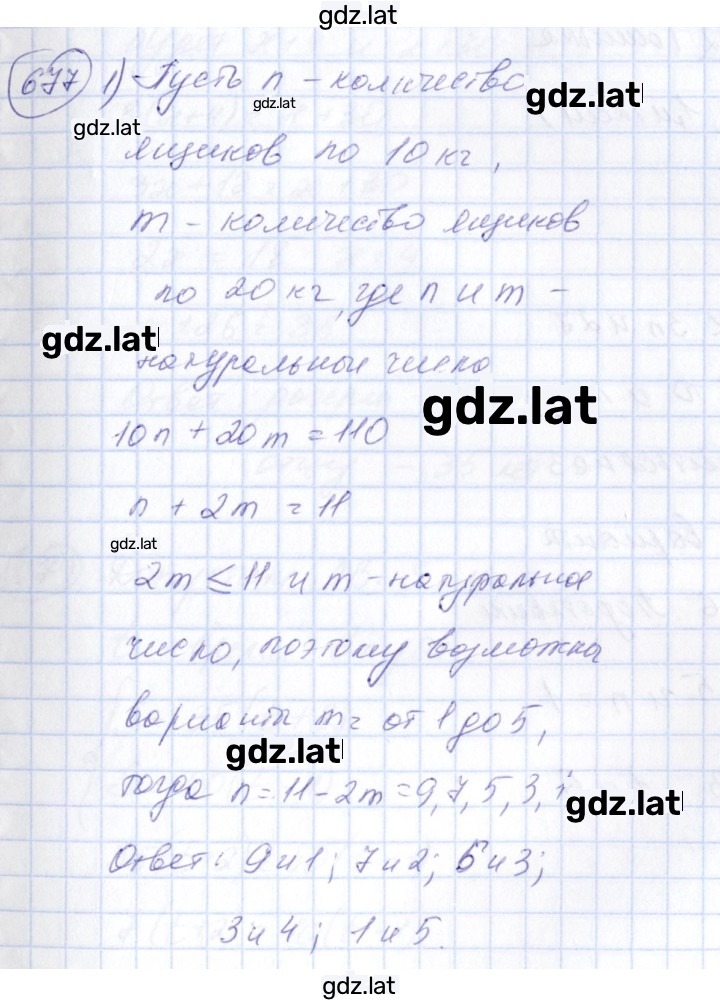 gdz.lat
677 1) Пусть n - количество
gdz.lat gdz.lat gdz.lat
ящиков по 10 кг,
m - количество ящиков
по 20 кг, где n и m -
gdz.lat
натуральные числа
gdz.lat
10n + 20m = 110
n + 2m = 11
gdz.lat
2m ≤ 11 и m - натуральное
число, поэтому возможны
варианты m = от 1 до 5,
gdz.lat
тогда n = 11 - 2m = 9, 7, 5, 3, 1
gdz.lat
Ответ: 9 и 1; 7 и 2; 5 и 3;
3 и 4; 1 и 5.
gdz.lat